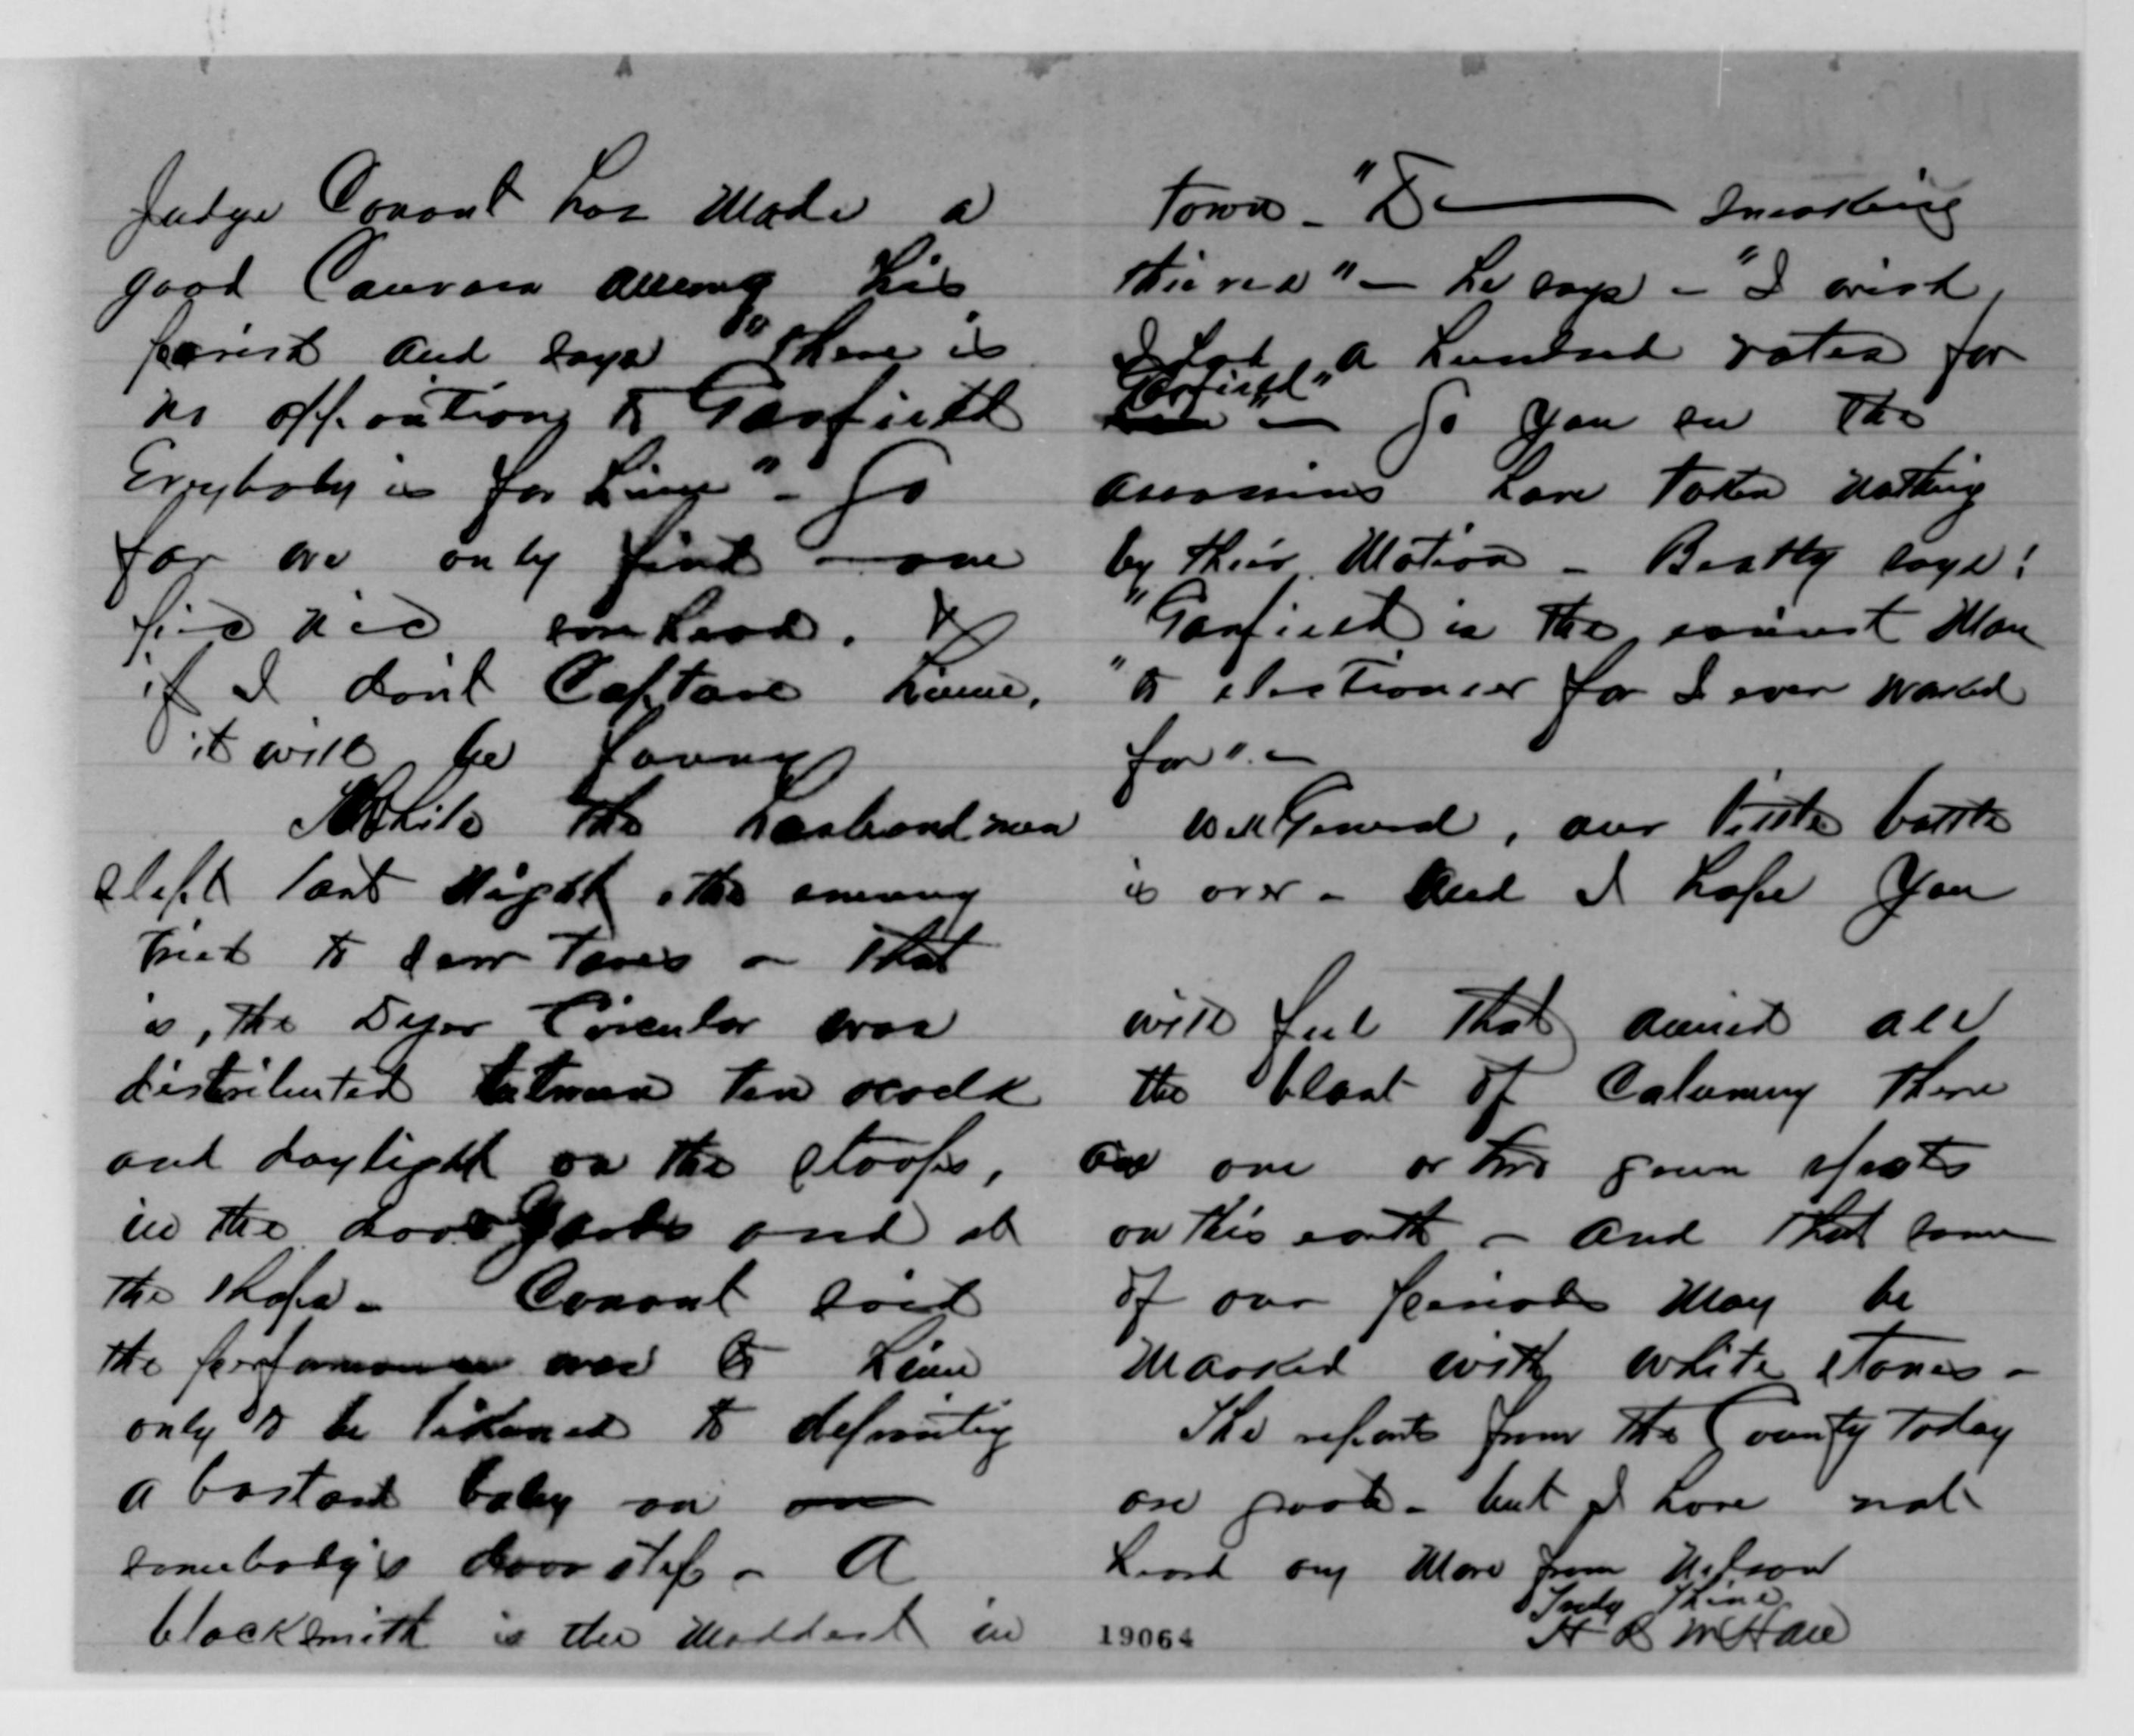 Judge Conant has made a
good Canvass among his
parish and says "There is
no opposition to Garfield
Everybody is for him" - So
far we only find - one
sorehead. &
if I don't Capture him,
it will be funny
While the husbandmen
slept last night, the enemy
tried to sow tares - that
is, the Dyer Circular was
distributed between ten oclock
and daylight on the stoops,
in the door yards and at
the shops - Conant said
the performance was to him
only to be likened to depositing
a bastard baby on
somebody's door step - A
blacksmith is the maddest in
town - "D—— sneaking
thieves" - he says - "I wish
I had a hundred votes for
Garfield" - So you see the
assassins have taken nothing
by their motion - Beatty says:
"Garfield is the easiest man
"to electioneer for I ever worked
for" -
Well General, our little battle
is over - and I hope you
will feel that amid all
the blast of Calumny there
are one or two green spots
on this earth - and that some
of our periods may be
marked with white stones -
The reports from the County today
are good - but I have not
heard any more from Nelson
Truly Thine
19064